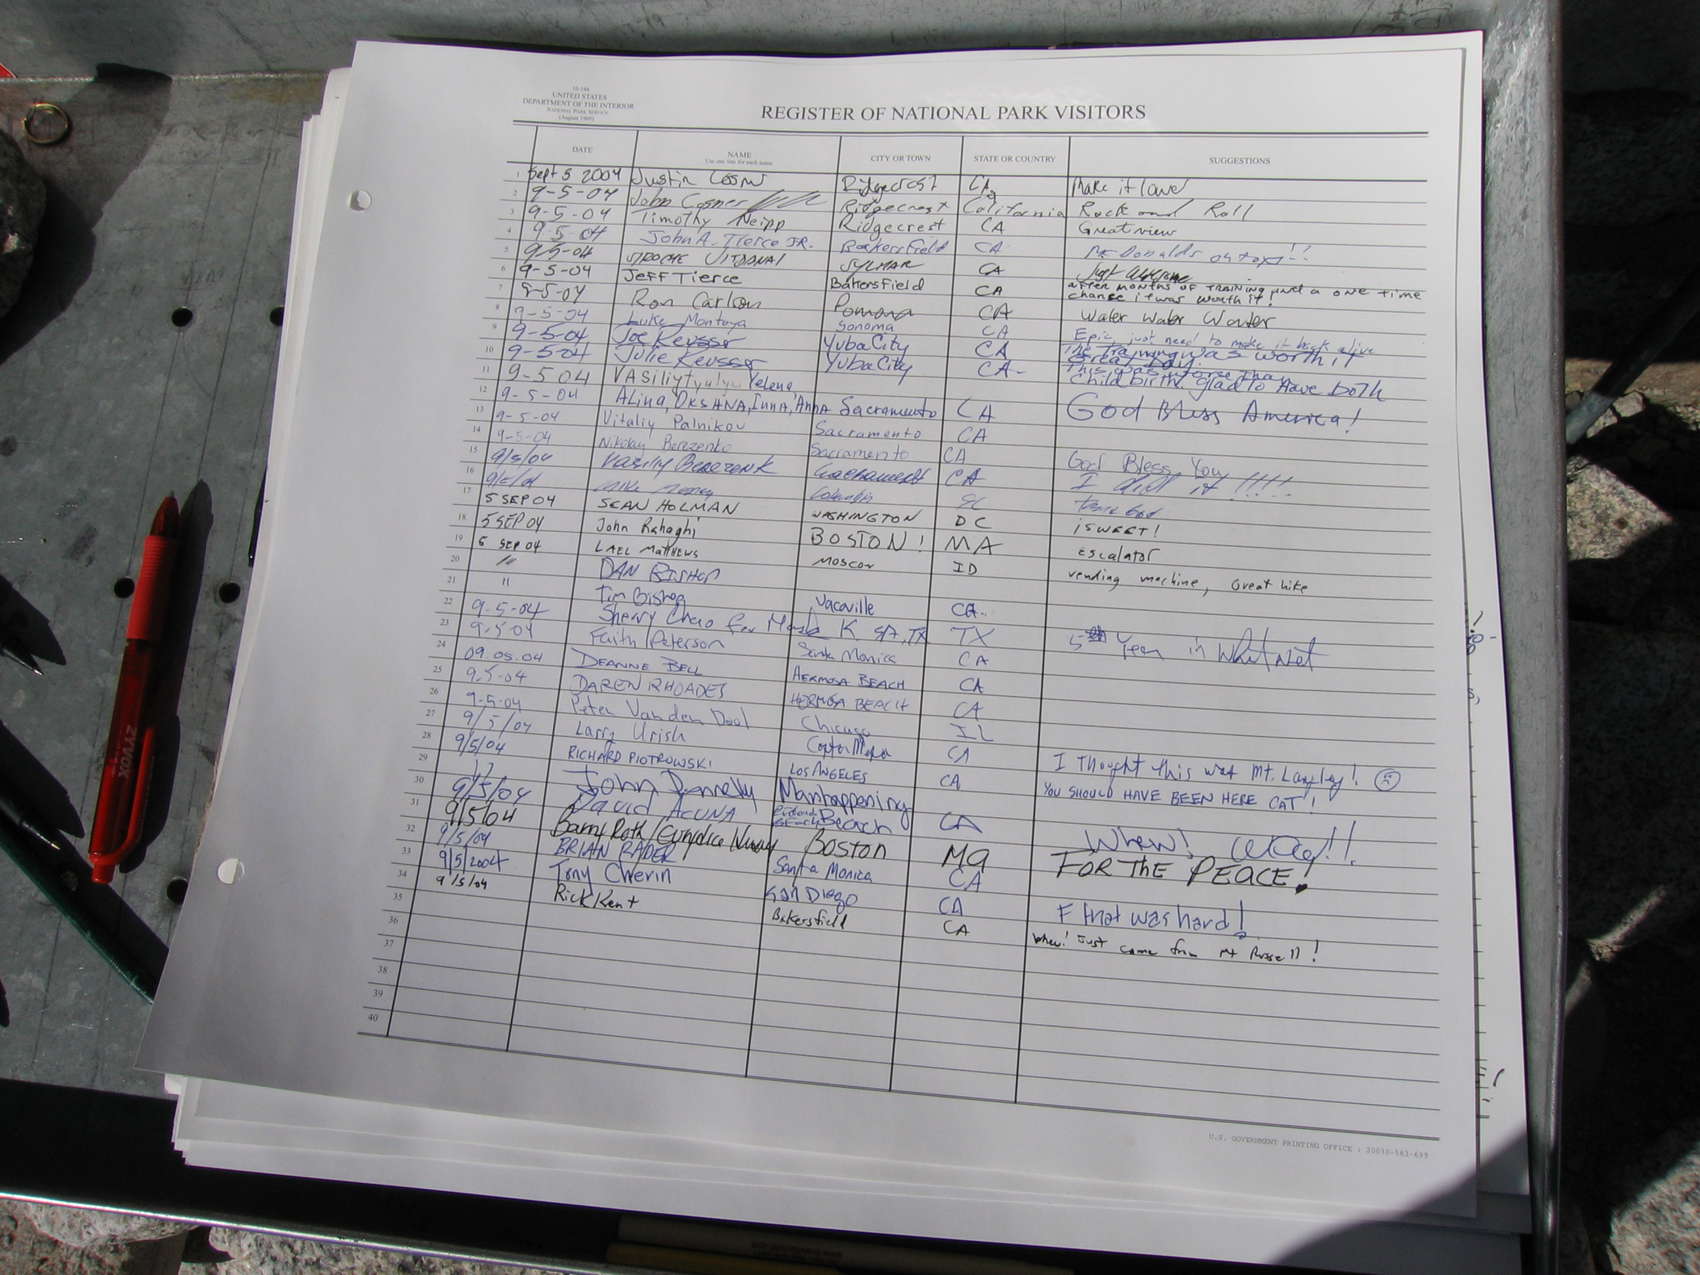 10-188
UNITED STATES
DEPARTMENT OF THE INTERIOR
NATIONAL PARK SERVICE
(August 1969)
REGISTER OF NATIONAL PARK VISITORS
DATE NAME CITY OR TOWN STATE OR COUNTRY SUGGESTIONS
Use one line for each name
1 Sept 5 2004 Justin Ridgecrest CA Make it lower
2 9-5-04 John Cosner Ridgecrest California Rock and Roll
3 9-5-04 Timothy Neipp Ridgecrest CA Great view
4 9-5-04 John A. Tierce JR. Bakersfield CA McDonalds on top!!
5 9/5-04 SYLMAR CA
6 9-5-04 Jeff Tierce Bakersfield CA AFTER MONTHS OF TRAINING and a ONE TIME
chance it was worth it!
7 9-5-04 Ron Carlson Pomona CA Water Water Wonder
8 9-5-04 Luke Montoya Sonoma CA Epic, just need to make it back alive
9 9-5-04 Joe Keusser Yuba City CA The training was worth it
Great Day!
10 9-5-04 Julie Keusser Yuba City CA- This was worse than
Child birth, glad to have both
11 9-5-04 VASiliy Yelena
12 9-5-04 Alina, OKSANA, Inna, Anna Sacramento CA God Bless America!
13 9-5-04 Vitaliy Palnikov Sacramento CA
14 9-5-04 Nikolay Berezenko Sacramento CA God Bless You
15 9/5/04 Vasiliy Berezenk Sacramento CA I did it!!!!!
16 9/5/04 Columbia SC
17 5 SEP 04 SEAN HOLMAN WASHINGTON DC ¡SWEET!
18 5 SEP 04 John BOSTON! MA Escalator
19 5 SEP 04 LAEL MATTHEWS MOSCOW ID vending machine, Great hike
20 " DAN BISHOP
21 " Tim Bishop Vacaville CA
22 9-5-04 Sherry Chao for K SA, TX TX 5 Year in Whitney
23 9-5-04 Faith Peterson Santa Monica CA
24 09.05.04 DEANNE BELL HERMOSA BEACH CA
25 9-5-04 DAREN RHOADES HERMOSA BEACH CA
26 9-5-04 Peter Van den Dool Chicago IL
27 9/5/04 Larry Urish CA I thought this was Mt. Langley!
28 9/5/04 RICHARD PIOTROWSKI LOS ANGELES CA YOU SHOULD HAVE BEEN HERE CAT!
29 John Donnelly Manhappening
30 9/5/04 David ACUNA Beach CA Whew! WOW!!
31 9/5/04 Barry Roth/ Boston MA FOR THE PEACE!
32 9/5/04 BRIAN RADER Santa Monica CA
33 9/5/2004 Tony Cherin San Diego CA F that was hard!
34 9/5/04 Rick Kent Bakersfield CA Whew! Just came from Mt Russell!
35
36
37
38
39
40
U.S. GOVERNMENT PRINTING OFFICE
ZYVOX